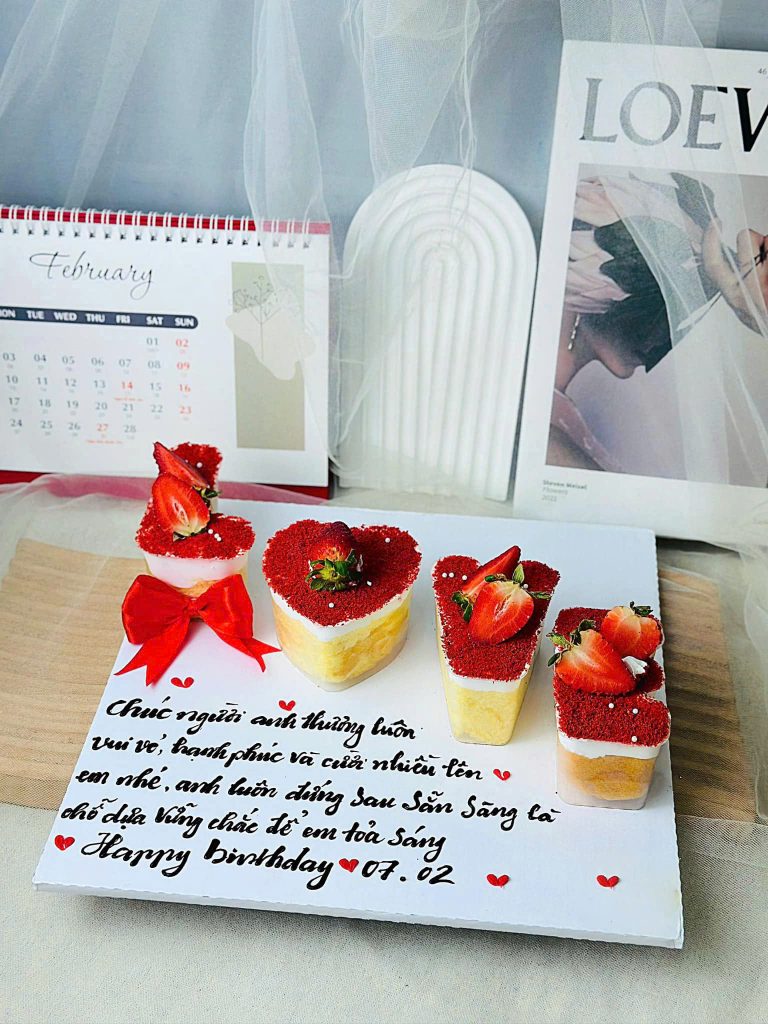 LOEW
46
February
MON TUE WED THU FRI SAT SUN
01 02
03 04 05 06 07 08 09
10 11 12 13 14 15 16
17 18 19 20 21 22 23
24 25 26 27 28
Steven Meisel
Flowers
2022
Chúc người anh thương luôn
vui vẻ, hạnh phúc và cười nhiều lên
em nhé, anh luôn đứng sau sẵn sàng là
chỗ dựa vững chắc để em tỏa sáng
Happy Birthday 07.02